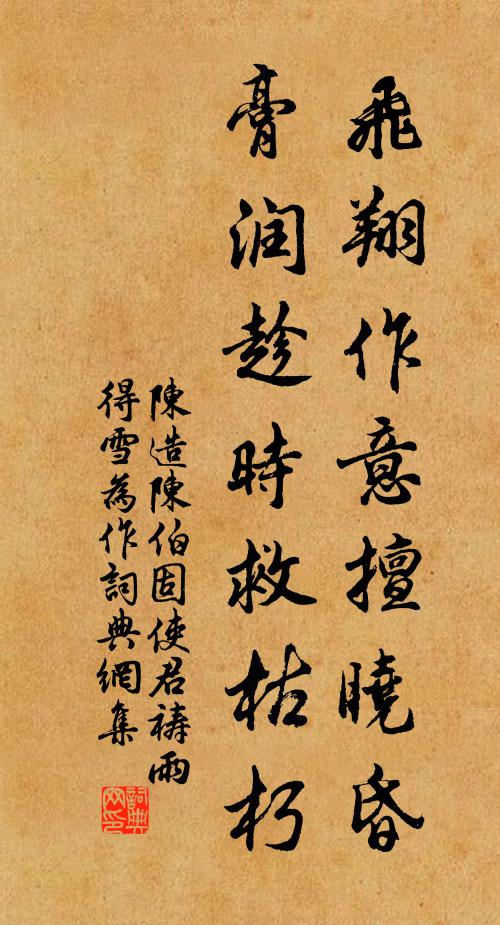 飛翔作意擅曉昏
膏潤趁時救枯朽
陳造陳伯固使君禱雨
得雪為作詞典網集
詞典網印